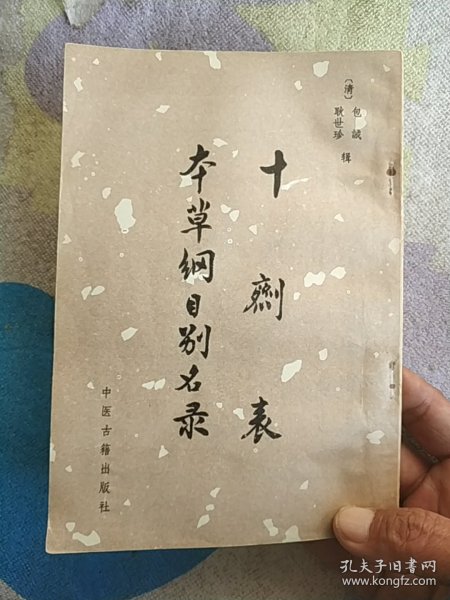 〔清〕
包誠
耿世珍
辑
十劑表
本草綱目别名录
中医古籍出版社
孔夫子旧书网
www.kongfz.com